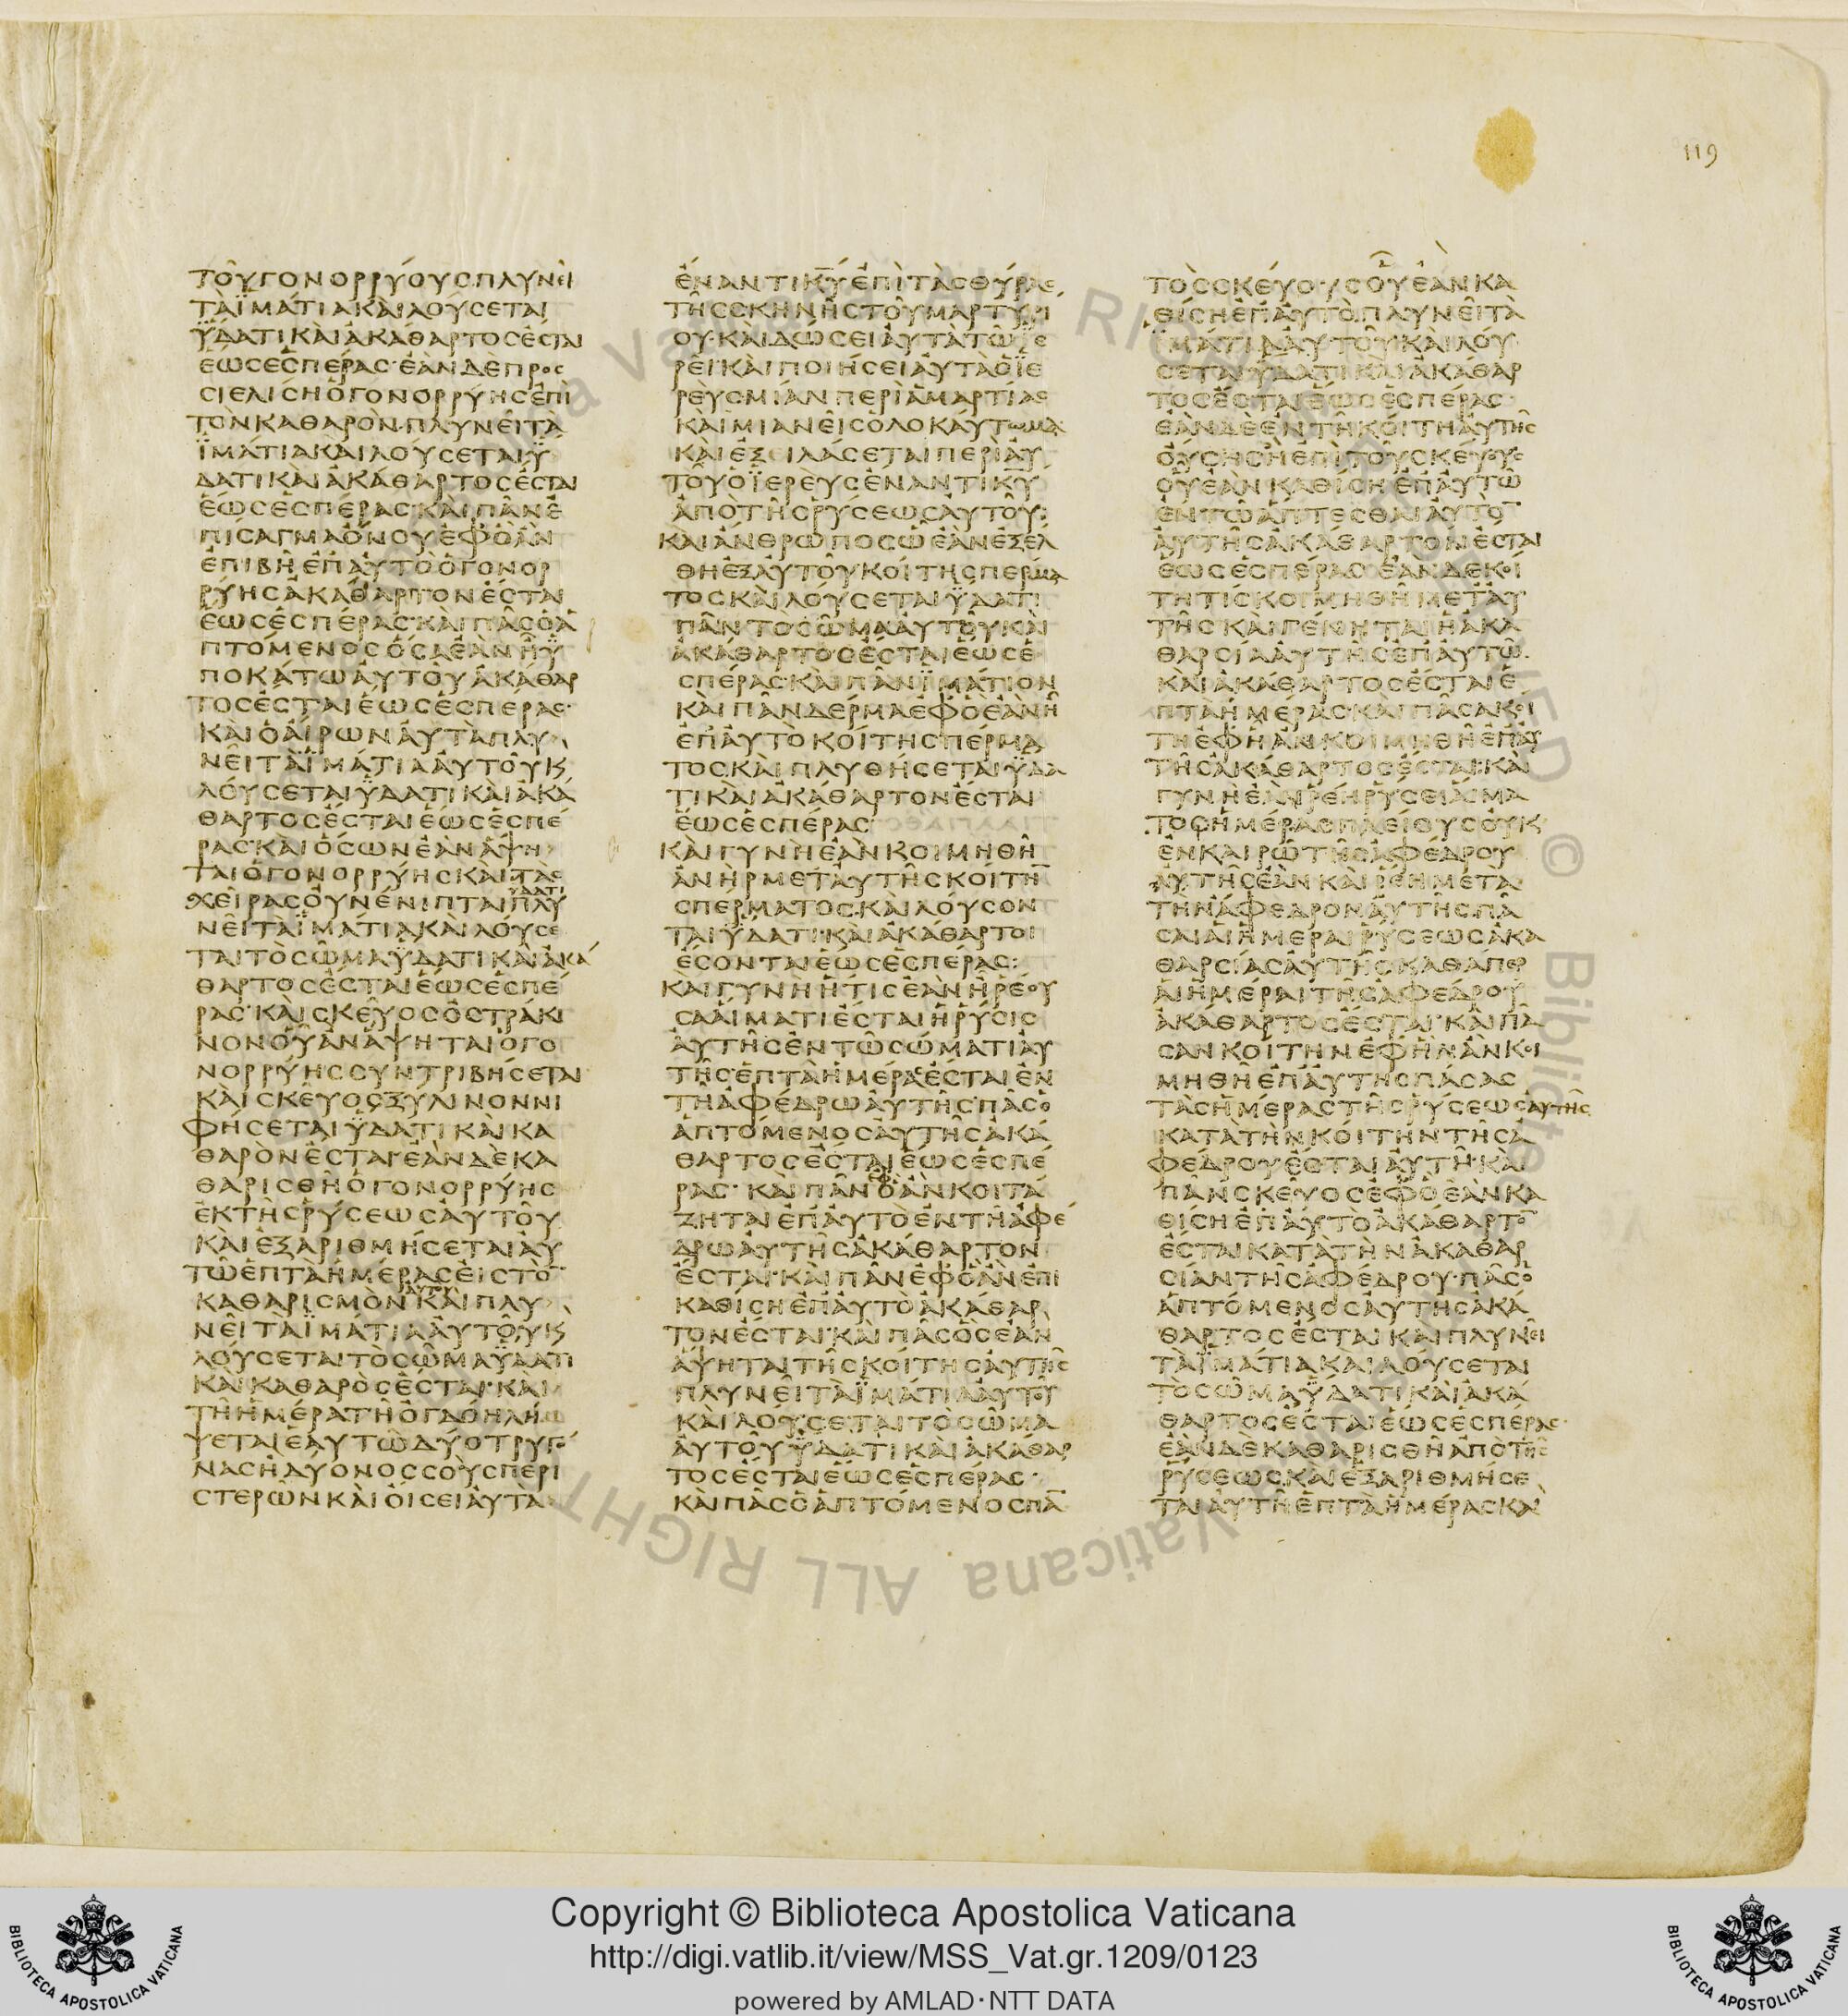 119
ΤΟΥΓΟΝΟΡΡΥΟΥΣΠΛΥΝΕΙ
ΤΑΪΜΑΤΙΑΚΑΙΛΟΥΣΕΤΑΙ
ΫΔΑΤΙΚΑΙΑΚΑΘΑΡΤΟΣΕΣΤΑΙ
ΕΩΣΕΣΠΕΡΑΣ·ΕΑΝΔΕΠΡΟΣ
ΣΙΕΛΙΣΗΟΓΟΝΟΡΡΥΗΣΕΠΙ
ΤΟΝΚΑΘΑΡΟΝ·ΠΛΥΝΕΙΤΑ
ΪΜΑΤΙΑΚΑΙΛΟΥΣΕΤΑΙΫ
ΔΑΤΙΚΑΙΑΚΑΘΑΡΤΟΣΕΣΤΑΙ
ΕΩΣΕΣΠΕΡΑΣ·ΚΑΙΠΑΝΕ
ΠΙΣΑΓΜΑΟΝΟΥΕΦΟΑΝ
ΕΠΙΒΗΕΠΑΥΤΟΟΓΟΝΟΡ
ΡΥΗΣΑΚΑΘΑΡΤΟΝΕΣΤΑΙ
ΕΩΣΕΣΠΕΡΑΣ·ΚΑΙΠΑΣΟΑ
ΠΤΟΜΕΝΟΣΟΣΑΕΑΝΗΫ
ΠΟΚΑΤΩΑΥΤΟΥΑΚΑΘΑΡ
ΤΟΣΕΣΤΑΙΕΩΣΕΣΠΕΡΑΣ·
ΚΑΙΟΑΙΡΩΝΑΥΤΑΠΛΥ
ΝΕΙΤΑΪΜΑΤΙΑΑΥΤΟΥΚ
ΛΟΥΣΕΤΑΙΫΔΑΤΙΚΑΙΑΚΑ
ΘΑΡΤΟΣΕΣΤΑΙΕΩΣΕΣΠΕ
ΡΑΣ·ΚΑΙΟΣΩΝΕΑΝΑΨΗ
ΤΑΙΟΓΟΝΟΡΡΥΗΣΚΑΙΤΑΣ
ΧΕΙΡΑΣΟΥΝΕΝΙΠΤΑΙΫΔΑΤΙΠΛΥ
ΝΕΙΤΑΪΜΑΤΙΑΚΑΙΛΟΥΣΕ
ΤΑΙΤΟΣΩΜΑΫΔΑΤΙΚΑΙΑΚΑ
ΘΑΡΤΟΣΕΣΤΑΙΕΩΣΕΣΠΕ
ΡΑΣ·ΚΑΙΣΚΕΥΟΣΟΣΤΡΑΚΙ
ΝΟΝΟΥΑΝΑΨΗΤΑΙΟΓΟ
ΝΟΡΡΥΗΣΣΥΝΤΡΙΒΗΣΕΤΑΙ
ΚΑΙΣΚΕΥΟΣΞΥΛΙΝΟΝΝΙ
ΦΗΣΕΤΑΙΫΔΑΤΙΚΑΙΚΑ
ΘΑΡΟΝΕΣΤΑΙ·ΕΑΝΔΕΚΑ
ΘΑΡΙΣΘΗΟΓΟΝΟΡΡΥΗΣ
ΕΚΤΗΣΡΥΣΕΩΣΑΥΤΟΥ
ΚΑΙΕΞΑΡΙΘΜΗΣΕΤΑΙΑΥ
ΤΩΕΠΤΑΗΜΕΡΑΣΕΙΣΤΟ
ΚΑΘΑΡΙΣΜΟΝΚΑΙΠΛΥ
ΝΕΙΤΑΪΜΑΤΙΑΑΥΤΟΥΚ
ΛΟΥΣΕΤΑΙΤΟΣΩΜΑΫΔΑΤΙ
ΚΑΙΚΑΘΑΡΟΣΕΣΤΑΙ·ΚΑΙ
ΤΗΗΜΕΡΑΤΗΟΓΔΟΗΛΗΜ
ΨΕΤΑΙΕΑΥΤΩΔΥΟΤΡΥΓΟ
ΝΑΣΗΔΥΟΝΟΣΣΟΥΣΠΕΡΙ
ΣΤΕΡΩΝΚΑΙΟΙΣΕΙΑΥΤΑ
ΕΝΑΝΤΙΚΥΕΠΙΤΑΣΘΥΡΑΣ
ΤΗΣΣΚΗΝΗΣΤΟΥΜΑΡΤΥΡΙ
ΟΥ·ΚΑΙΔΩΣΕΙΑΥΤΑΤΩΪΕ
ΡΕΙ·ΚΑΙΠΟΙΗΣΕΙΑΥΤΑΟΪΕ
ΡΕΥΣΜΙΑΝΠΕΡΙΑΜΑΡΤΙΑΣ
ΚΑΙΜΙΑΝΕΙΣΟΛΟΚΑΥΤΩΜΑ
ΚΑΙΕΞΙΛΑΣΕΤΑΙΠΕΡΙΑΥ
ΤΟΥΟΪΕΡΕΥΣΕΝΑΝΤΙΚΥ
ΑΠΟΤΗΣΡΥΣΕΩΣΑΥΤΟΥ:
ΚΑΙΑΝΘΡΩΠΟΣΩΕΑΝΕΞΕΛ
ΘΗΕΞΑΥΤΟΥΚΟΙΤΗΣΠΕΡΜΑ
ΤΟΣΚΑΙΛΟΥΣΕΤΑΙΫΔΑΤΙ
ΠΑΝΤΟΣΩΜΑΑΥΤΟΥΚΑΙ
ΑΚΑΘΑΡΤΟΣΕΣΤΑΙΕΩΣΕ
ΣΠΕΡΑΣ·ΚΑΙΠΑΝΪΜΑΤΙΟΝ
ΚΑΙΠΑΝΔΕΡΜΑΕΦΟΕΑΝΗ
ΕΠΑΥΤΟΚΟΙΤΗΣΠΕΡΜΑ
ΤΟΣ·ΚΑΙΠΛΥΘΗΣΕΤΑΙΫΔΑ
ΤΙΚΑΙΑΚΑΘΑΡΤΟΝΕΣΤΑΙ
ΕΩΣΕΣΠΕΡΑΣ
ΚΑΙΓΥΝΗΕΑΝΚΟΙΜΗΘΗ
ΑΝΗΡΜΕΤΑΥΤΗΣΚΟΙΤΗ
ΣΠΕΡΜΑΤΟΣ·ΚΑΙΛΟΥΣΟΝ
ΤΑΙΫΔΑΤΙ·ΚΑΙΑΚΑΘΑΡΤΟΙ
ΕΣΟΝΤΑΙΕΩΣΕΣΠΕΡΑΣ:
ΚΑΙΓΥΝΗΗΤΙΣΕΑΝΗΡΕΟΥ
ΣΑΑΙΜΑΤΙΕΣΤΑΙΗΡΥΣΙΣ
ΑΥΤΗΣΕΝΤΩΣΩΜΑΤΙΑΥ
ΤΗΣ·ΕΠΤΑΗΜΕΡΑΣΕΣΤΑΙΕΝ
ΤΗΑΦΕΔΡΩΑΥΤΗΣ·ΠΑΣΟ
ΑΠΤΟΜΕΝΟΣΑΥΤΗΣΑΚΑ
ΘΑΡΤΟΣΕΣΤΑΙΕΩΣΕΣΠΕ
ΡΑΣ·ΚΑΙΠΑΝΕΦΟΑΝΚΟΙΤΑ
ΖΗΤΑΙΕΠΑΥΤΟΕΝΤΗΑΦΕ
ΔΡΩΑΥΤΗΣΑΚΑΘΑΡΤΟΝ
ΕΣΤΑΙ·ΚΑΙΠΑΝΕΦΟΑΝΕΠΙ
ΚΑΘΙΣΗΕΠΑΥΤΟΑΚΑΘΑΡ
ΤΟΝΕΣΤΑΙ·ΚΑΙΠΑΣΟΣΕΑΝ
ΑΨΗΤΑΙΤΗΣΚΟΙΤΗΣΑΥΤΗΣ
ΠΛΥΝΕΙΤΑΪΜΑΤΙΑΑΥΤΟΥ
ΚΑΙΛΟΥΣΕΤΑΙΤΟΣΩΜΑ
ΑΥΤΟΥΫΔΑΤΙΚΑΙΑΚΑΘΑΡ
ΤΟΣΕΣΤΑΙΕΩΣΕΣΠΕΡΑΣ·
ΚΑΙΠΑΣΟΑΠΤΟΜΕΝΟΣΠΑ
ΤΟΣΣΚΕΥΟΥΣΟΥΕΑΝΚΑ
ΘΙΣΗΕΠΑΥΤΟ·ΠΛΥΝΕΙΤΑ
ΪΜΑΤΙΑΑΥΤΟΥ·ΚΑΙΛΟΥ
ΣΕΤΑΙΫΔΑΤΙΚΑΙΑΚΑΘΑΡ
ΤΟΣΕΣΤΑΙΕΩΣΕΣΠΕΡΑΣ·
ΕΑΝΔΕΕΝΤΗΚΟΙΤΗΑΥΤΗΣ
ΟΥΣΗΣΗΕΠΙΤΟΥΣΚΕΥΟΥΣ
ΟΥΕΑΝΚΑΘΙΣΗΕΠΑΥΤΩ
ΕΝΤΩΑΠΤΕΣΘΑΙΑΥΤΟ
ΑΥΤΗΣΑΚΑΘΑΡΤΟΝΕΣΤΑΙ
ΕΩΣΕΣΠΕΡΑΣ·ΕΑΝΔΕΚΟΙ
ΤΗΤΙΣΚΟΙΜΗΘΗΜΕΤΑΥ
ΤΗΣ·ΚΑΙΓΕΝΗΤΑΙΗΑΚΑ
ΘΑΡΣΙΑΑΥΤΗΣΕΠΑΥΤΩ·
ΚΑΙΑΚΑΘΑΡΤΟΣΕΣΤΑΙΕ
ΠΤΑΗΜΕΡΑΣ·ΚΑΙΠΑΣΑΚΟΙ
ΤΗΕΦΗΑΝΚΟΙΜΗΘΗΕΠΑΥ
ΤΗΣΑΚΑΘΑΡΤΟΣΕΣΤΑΙ·ΚΑΙ
ΓΥΝΗΕΑΝΡΕΗΡΥΣΕΙΑΙΜΑ
ΤΟΣΗΜΕΡΑΣΠΛΕΙΟΥΣΟΥΚ
ΕΝΚΑΙΡΩΤΗΣΑΦΕΔΡΟΥ
ΑΥΤΗΣΕΑΝΚΑΙΡΕΗΜΕΤΑ
ΤΗΝΑΦΕΔΡΟΝΑΥΤΗΣ·ΠΑ
ΣΑΙΑΙΗΜΕΡΑΙΡΥΣΕΩΣΑΚΑ
ΘΑΡΣΙΑΣΑΥΤΗΣΚΑΘΑΠΕΡ
ΑΙΗΜΕΡΑΙΤΗΣΑΦΕΔΡΟΥ
ΑΚΑΘΑΡΤΟΣΕΣΤΑΙ·ΚΑΙΠΑ
ΣΑΝΚΟΙΤΗΝΕΦΗΝΑΝΚΟΙ
ΜΗΘΗΕΠΑΥΤΗΣΠΑΣΑΣ
ΤΑΣΗΜΕΡΑΣΤΗΣΡΥΣΕΩΣΑΥΤΗΣ
ΚΑΤΑΤΗΝΚΟΙΤΗΝΤΗΣΑ
ΦΕΔΡΟΥΕΣΤΑΙΑΥΤΗ·ΚΑΙ
ΠΑΝΣΚΕΥΟΣΕΦΟΕΑΝΚΑ
ΘΙΣΗΕΠΑΥΤΟΑΚΑΘΑΡΤΟ
ΕΣΤΑΙΚΑΤΑΤΗΝΑΚΑΘΑΡ
ΣΙΑΝΤΗΣΑΦΕΔΡΟΥ·ΠΑΣΟ
ΑΠΤΟΜΕΝΟΣΑΥΤΗΣΑΚΑ
ΘΑΡΤΟΣΕΣΤΑΙΚΑΙΠΛΥΝΕΙ
ΤΑΪΜΑΤΙΑΚΑΙΛΟΥΣΕΤΑΙ
ΤΟΣΩΜΑΫΔΑΤΙΚΑΙΑΚΑ
ΘΑΡΤΟΣΕΣΤΑΙΕΩΣΕΣΠΕΡΑΣ·
ΕΑΝΔΕΚΑΘΑΡΙΣΘΗΑΠΟΤΗΣ
ΡΥΣΕΩΣ·ΚΑΙΕΞΑΡΙΘΜΗΣΕ
ΤΑΙΑΥΤΗΕΠΤΑΗΜΕΡΑΣΚΑΙ
Copyright © Biblioteca Apostolica Vaticana
http://digi.vatlib.it/view/MSS_Vat.gr.1209/0123
powered by AMLAD·NTT DATA
BIBLIOTECA APOSTOLICA VATICANA
BIBLIOTECA APOSTOLICA VATICANA